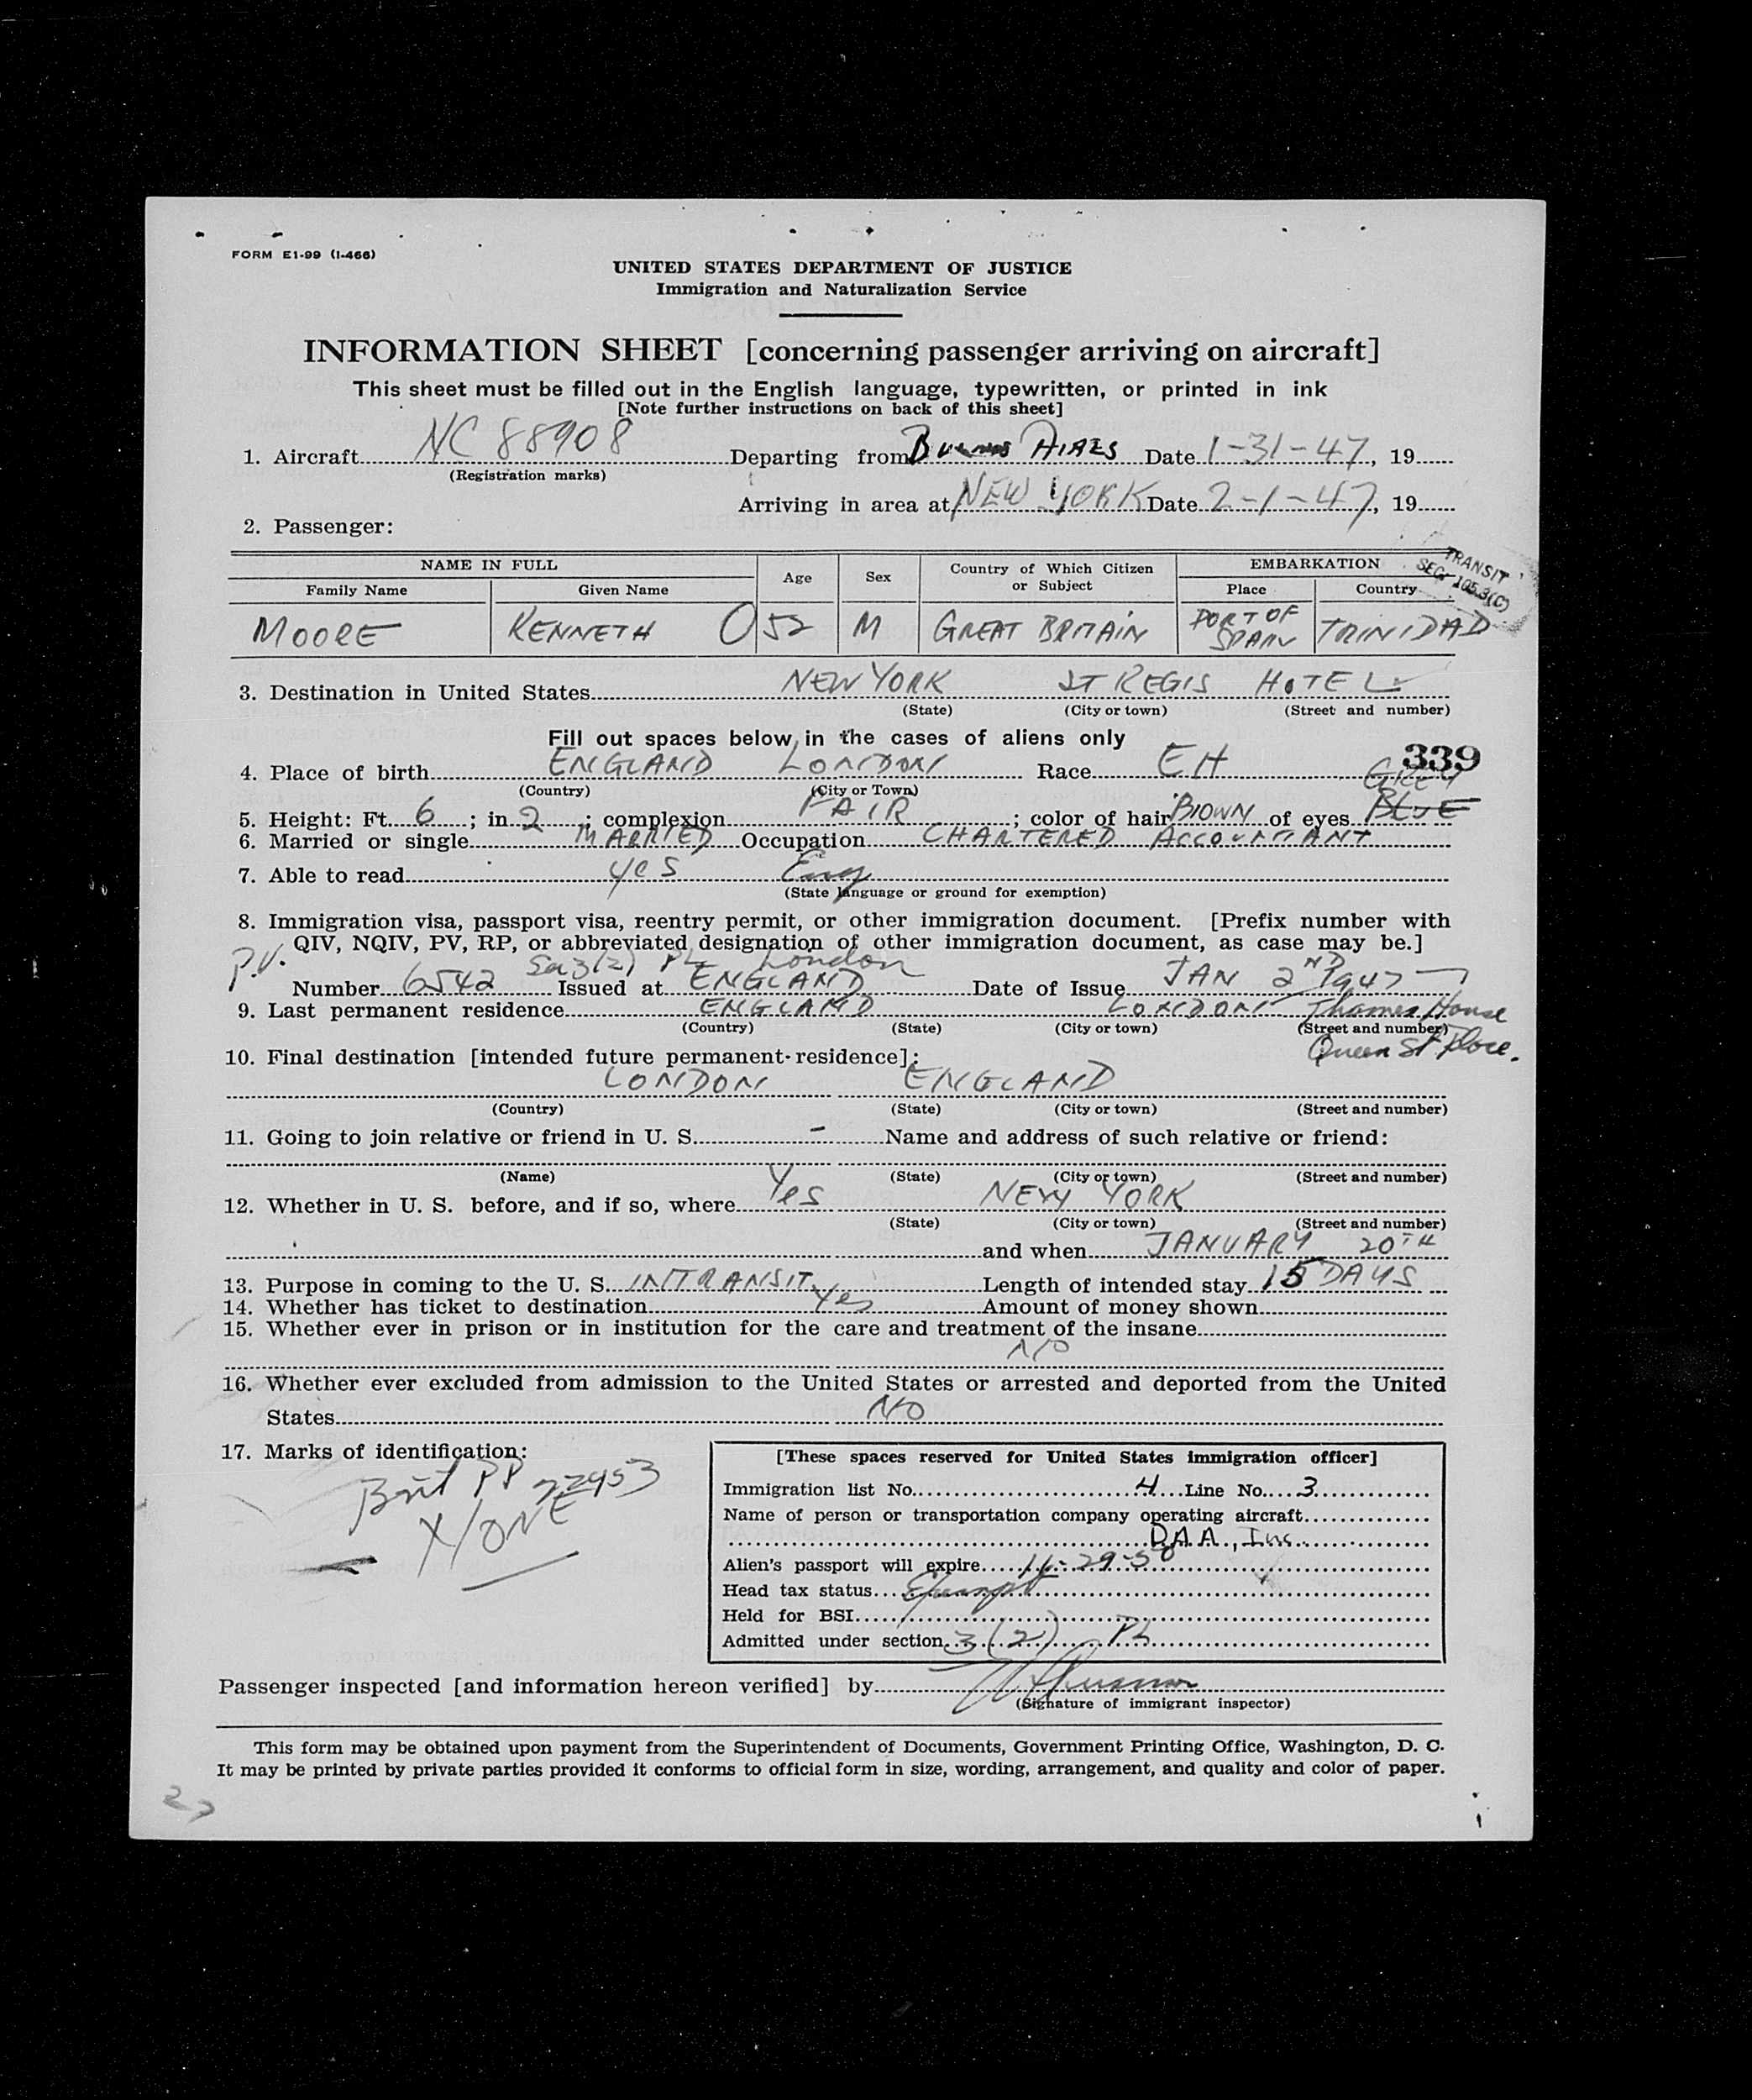 FORM E1-99 (I-466)
UNITED STATES DEPARTMENT OF JUSTICE
Immigration and Naturalization Service
INFORMATION SHEET [concerning passenger arriving on aircraft]
This sheet must be filled out in the English language, typewritten, or printed in ink
[Note further instructions on back of this sheet]
1. Aircraft NC 88908 Departing from Buenos AIRES Date 1-31-47, 19
(Registration marks)
Arriving in area at NEW YORK Date 2-1-47, 19
2. Passenger:
TRANSIT
SEC. 105.3(C)
NAME IN FULL Age Sex Country of Which Citizen or Subject EMBARKATION
Family Name Given Name Place Country
MOORE KENNETH O 52 M GREAT BRITAIN PORT OF SPAIN TRINIDAD
3. Destination in United States NEW YORK ST REGIS HOTEL
(State) (City or town) (Street and number)
Fill out spaces below in the cases of aliens only
339
4. Place of birth ENGLAND LONDON Race EH GREY
(Country) (City or Town)
5. Height: Ft. 6; in. 2; complexion FAIR; color of hair BROWN of eyes BLUE
6. Married or single MARRIED Occupation CHARTERED ACCOUNTANT
7. Able to read yes Eng
(State language or ground for exemption)
8. Immigration visa, passport visa, reentry permit, or other immigration document. [Prefix number with
QIV, NQIV, PV, RP, or abbreviated designation of other immigration document, as case may be.]
P.V. 3(2) London
Number 6542 Issued at ENGLAND Date of Issue JAN 2ND 1947
9. Last permanent residence ENGLAND LONDON Thames House
(Country) (State) (City or town) (Street and number)
Queen St Place.
10. Final destination [intended future permanent residence]:
LONDON ENGLAND
(Country) (State) (City or town) (Street and number)
11. Going to join relative or friend in U. S. - Name and address of such relative or friend:
(Name) (State) (City or town) (Street and number)
12. Whether in U. S. before, and if so, where Yes NEW YORK
(State) (City or town) (Street and number)
and when JANUARY 20TH
13. Purpose in coming to the U. S. INTRANSIT Length of intended stay 15 DAYS
14. Whether has ticket to destination Yes Amount of money shown
15. Whether ever in prison or in institution for the care and treatment of the insane
NO
16. Whether ever excluded from admission to the United States or arrested and deported from the United
States NO
17. Marks of identification:
Brit PP 22453
NONE
[These spaces reserved for United States immigration officer]
Immigration list No. 4 Line No. 3
Name of person or transportation company operating aircraft
P.A.A., Inc.
Alien's passport will expire 11-29-50
Head tax status Exempt
Held for BSI
Admitted under section 3(2) PL
Passenger inspected [and information hereon verified] by
(Signature of immigrant inspector)
This form may be obtained upon payment from the Superintendent of Documents, Government Printing Office, Washington, D. C.
It may be printed by private parties provided it conforms to official form in size, wording, arrangement, and quality and color of paper.